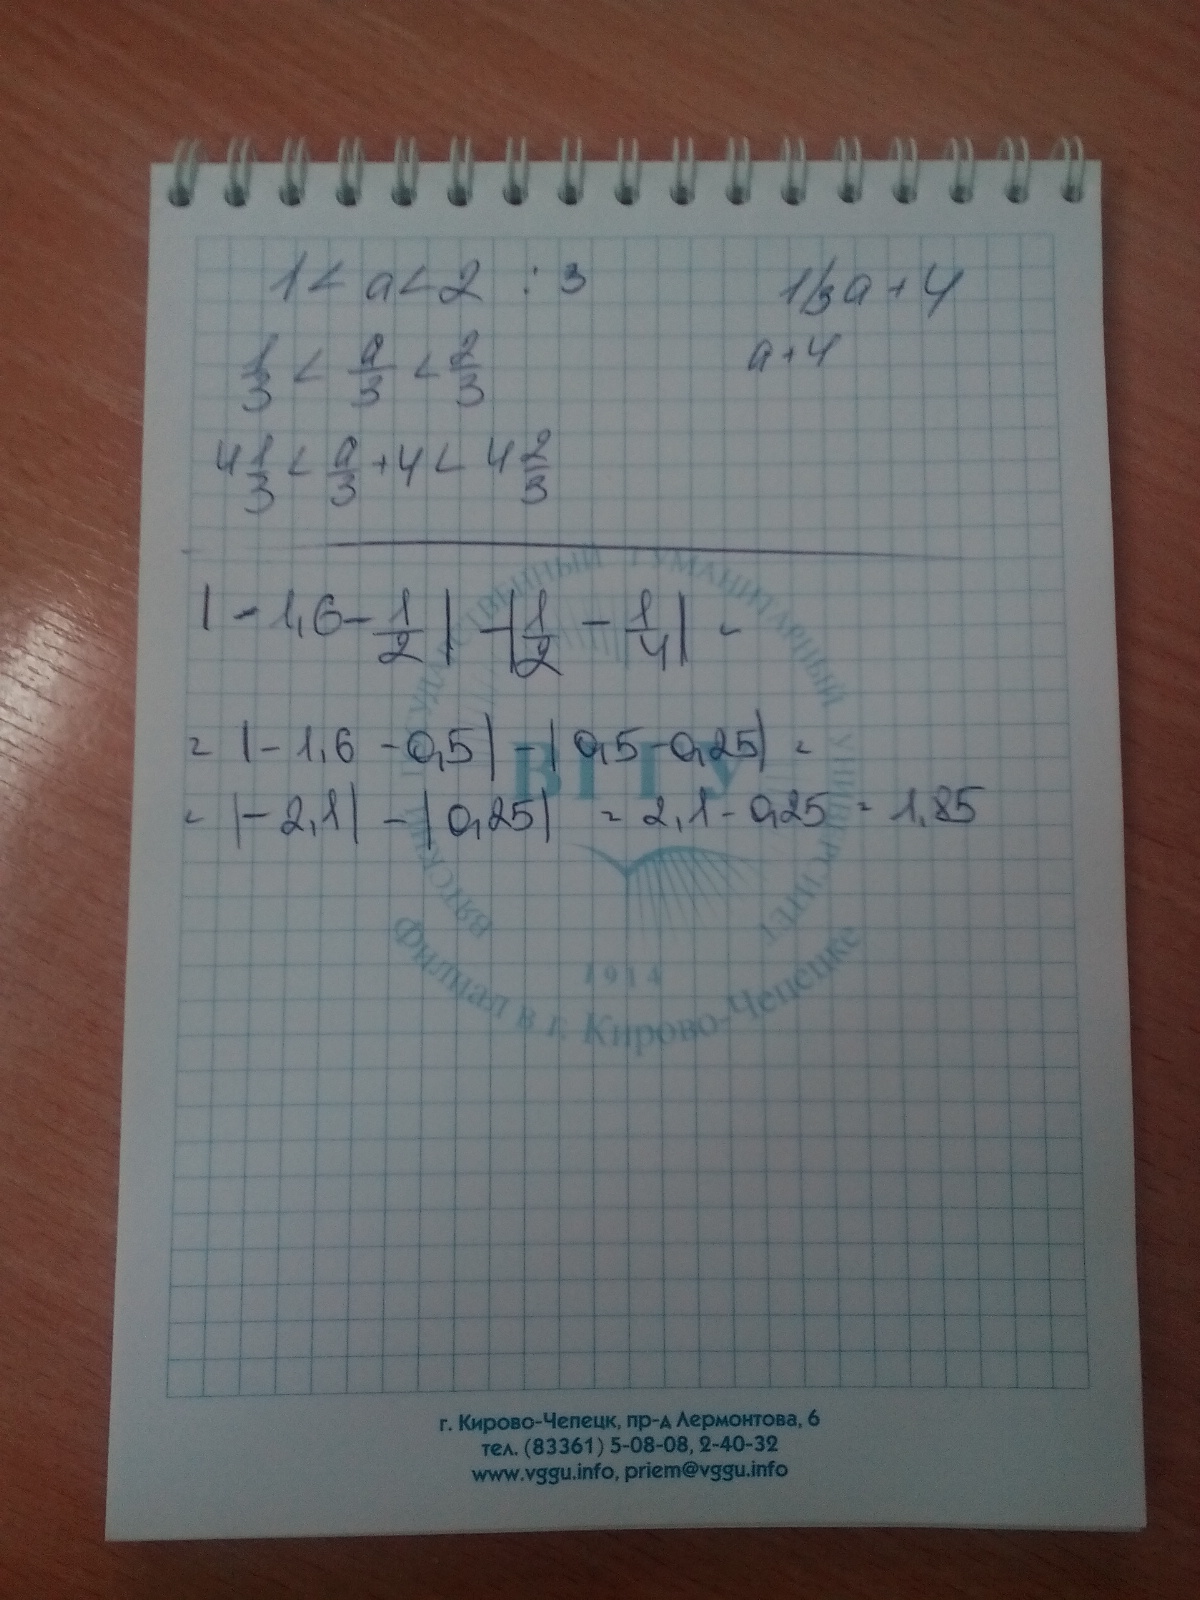 1 < a < 2 : 3
1/3 a + 4
1/3 < a/3 < 2/3
a + 4
4 1/3 < a/3 + 4 < 4 2/3
|-1,6 - 1/2| - |1/2 - 1/4| =
= |-1,6 - 0,5| - |0,5 - 0,25| =
= |-2,1| - |0,25| = 2,1 - 0,25 = 1,85
ВЯТСКИЙ ГОСУДАРСТВЕННЫЙ ГУМАНИТАРНЫЙ УНИВЕРСИТЕТ
ВГГУ
1914
Филиал в г. Кирово-Чепецке
г. Кирово-Чепецк, пр-д Лермонтова, 6
тел. (83361) 5-08-08, 2-40-32
www.vggu.info, priem@vggu.info